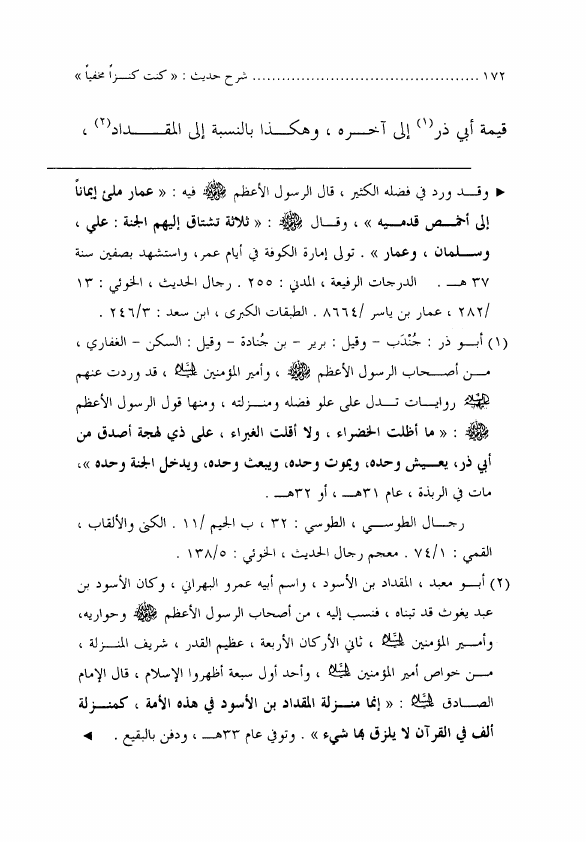 ١٧٢ ................................................ شرح حديث : « كنت كنـزاً مخفياً »
قيمة أبي ذر(١) إلى آخـره ، وهكـذا بالنسبة إلى المقـــداد(٢) ،
► وقـد ورد في فضله الكثير ، قال الرسول الأعظم ﷺ فيه : « عمار ملئ إيماناً
إلى أخمـص قدمـيه » ، وقـال ﷺ : « ثلاثة تشتاق إليهم الجنة : علي ،
وسـلمان ، وعمار » . تولى إمارة الكوفة في أيام عمر، واستشهد بصفين سنة
٣٧ هـ . الدرجات الرفيعة ، المدني : ٢٥٥ . رجال الحديث ، الخوئي : ١٣
/٢٨٢ ، عمار بن ياسر /٨٦٦٤ . الطبقات الكبرى ، ابن سعد : ٢٤٦/٣ .
(١) أبـو ذر : جُنْدَب – وقيل : برير – بن جُنادة – وقيل : السكن – الغفاري ،
مـن أصـحاب الرسول الأعظم ﷺ ، وأمير المؤمنين عليه السلام ، قد وردت عنهم
عليهم السلام روايـات تـدل على علو فضله ومنـزلته ، ومنها قول الرسول الأعظم
ﷺ : « ما أظلت الخضراء ، ولا أقلت الغبراء ، على ذي لهجة أصدق من
أبي ذر، يعـيش وحده، ويموت وحده، ويبعث وحده، ويدخل الجنة وحده »،
مات في الربذة ، عام ٣١هـ ، أو ٣٢هـ .
رجـال الطوسـي ، الطوسي : ٣٢ ، ب الجيم /١١ . الكنى والألقاب ،
القمي : ٧٤/١ . معجم رجال الحديث ، الخوئي : ١٣٨/٥ .
(٢) أبـو معبد ، المقداد بن الأسود ، واسم أبيه عمرو البهراني ، وكان الأسود بن
عبد يغوث قد تبناه ، فنسب إليه ، من أصحاب الرسول الأعظم ﷺ وحواريه،
وأمـير المؤمنين عليه السلام ، ثاني الأركان الأربعة ، عظيم القدر ، شريف المنـزلة ،
مـن خواص أمير المؤمنين عليه السلام ، وأحد أول سبعة أظهروا الإسلام ، قال الإمام
الصـادق عليه السلام : « إنما منـزلة المقداد بن الأسود في هذه الأمة ، كمنـزلة
ألف في القرآن لا يلزق بها شيء » . وتوفي عام ٣٣هـ ، ودفن بالبقيع . ◄